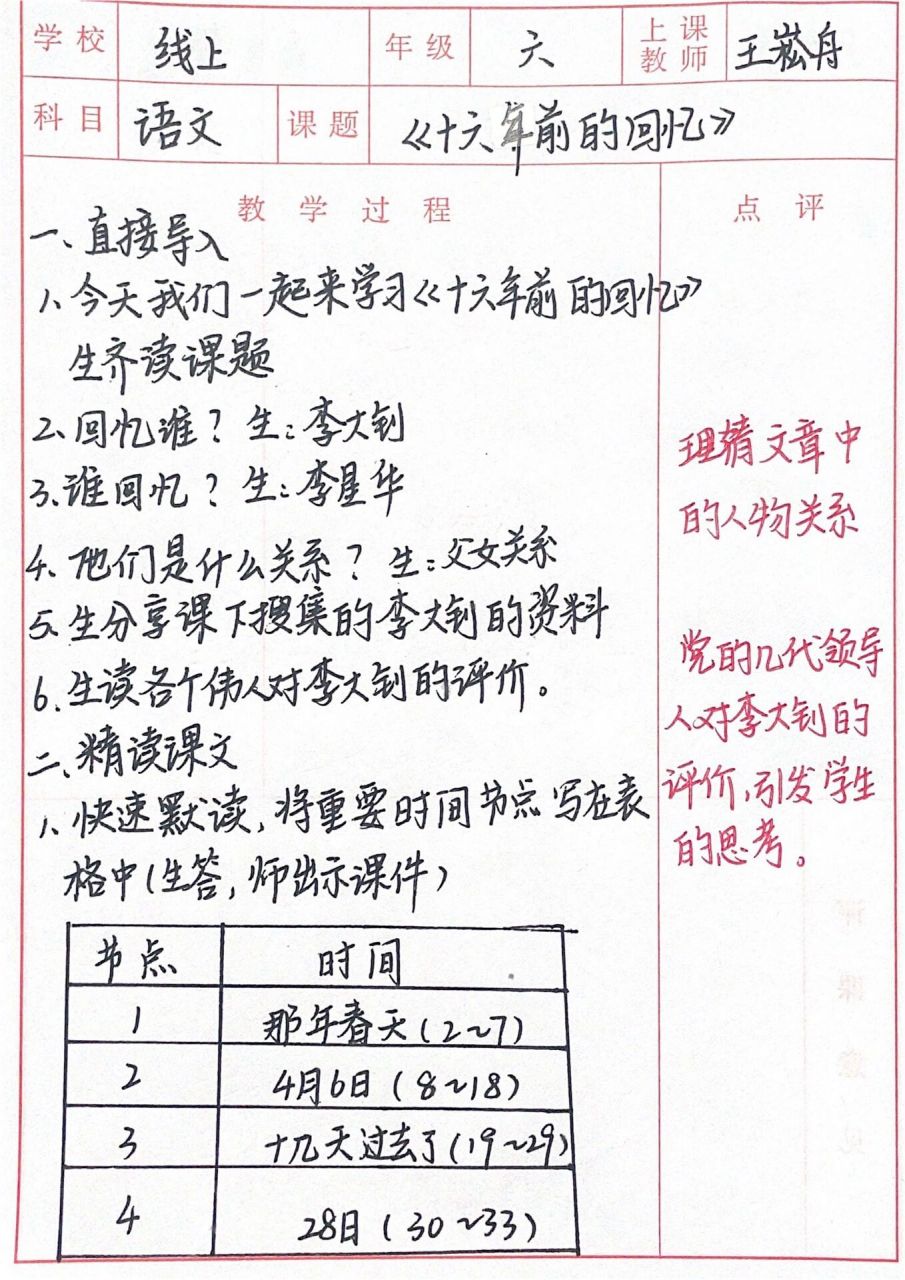 学校 线上 年级 六 上课教师 王崧舟
科目 语文 课题 《十六年前的回忆》
教学过程 点评
一、直接导入
1、今天我们一起来学习《十六年前的回忆》
生齐读课题
2、回忆谁？生：李大钊
3、谁回忆？生：李星华
4、他们是什么关系？生：父女关系
5、生分享课下搜集的李大钊的资料
6、生读各个伟人对李大钊的评价。
二、精读课文
1、快速默读，将重要时间节点写在表
格中（生答，师出示课件）
节点 时间
1 那年春天（2~7）
2 4月6日（8~18）
3 十几天过去了（19~29）
4 28日（30~33）
理清文章中
的人物关系
党的几代领导
人对李大钊的
评价，引发学生
的思考。